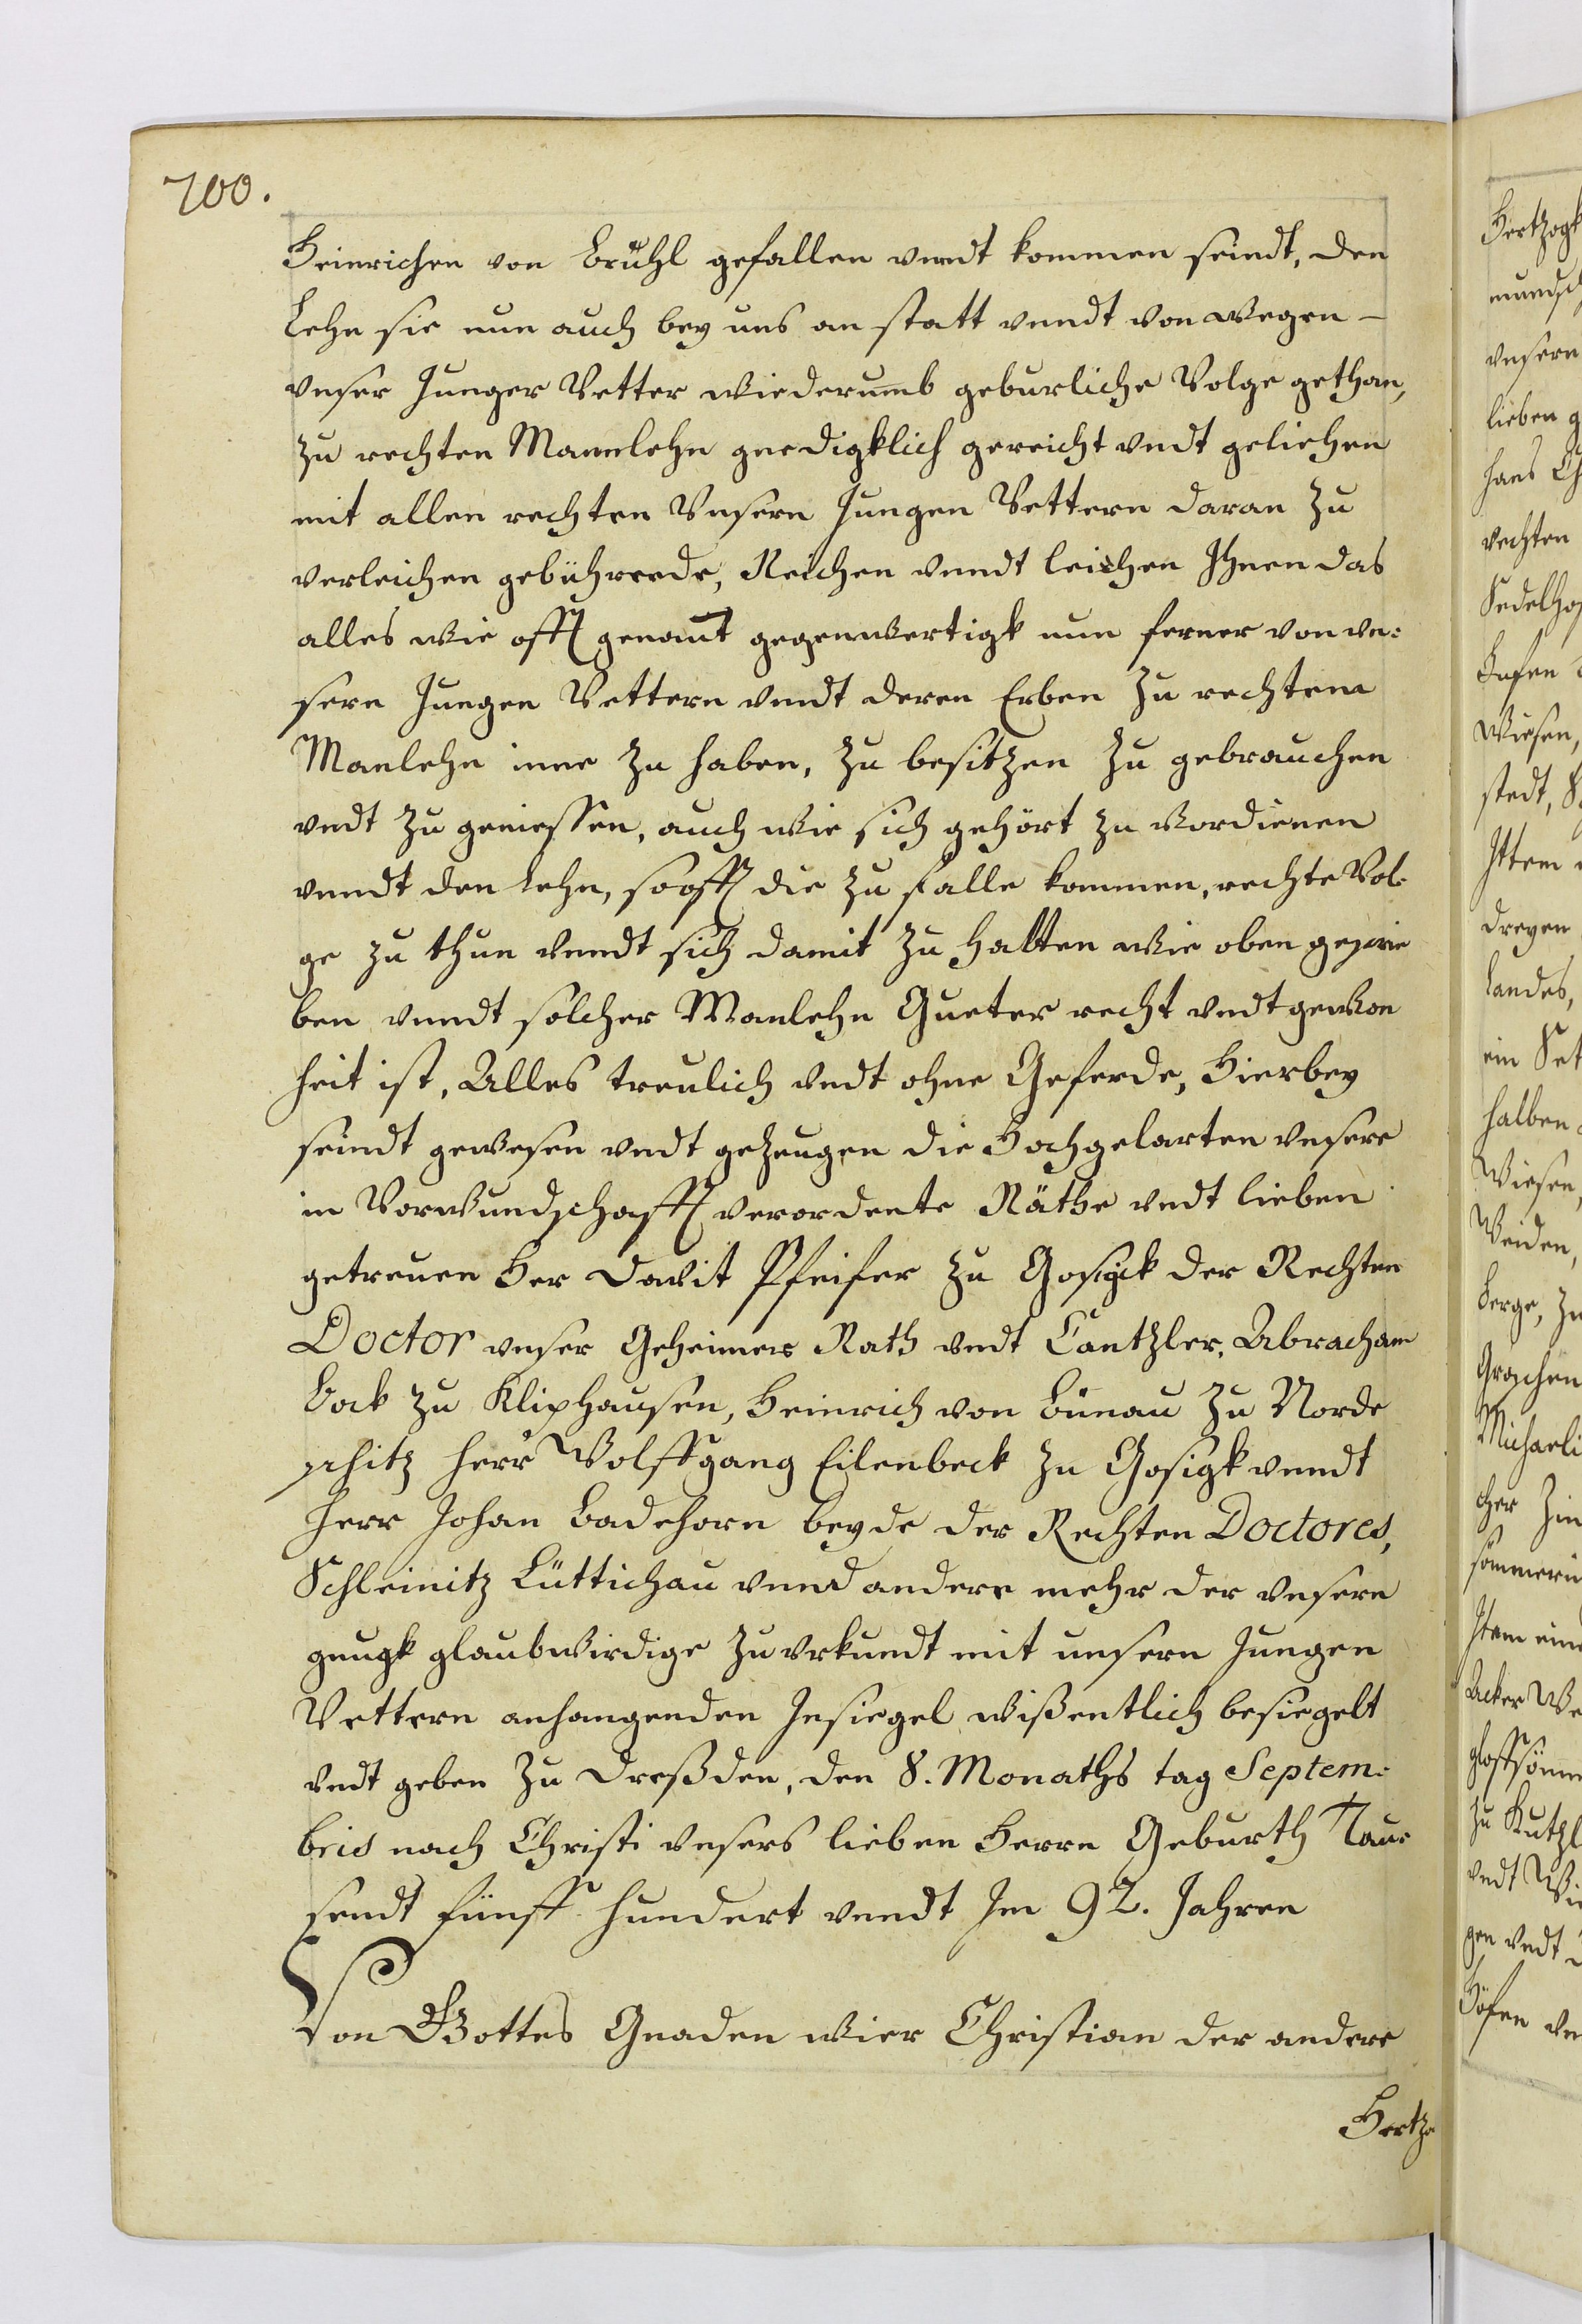 700.
Heinrichen von Brühl gefallen vnndt kommen seindt, den
Lehn sie nun auch bey uns an statt vnndt von wegen –
vnser Junger Vetter wiederumb geburliche Volge gethan,
zu rechten Mannlehn gnedigklich gereicht vndt geliehen
mit allen rechten Vnsern Jungen Vettern daran zu
verleichen gebührende, Reichen vnndt leichen Ihnen das
alles wie offt genant gegenwertigk nun ferner von vn:
sern Jungen Vettern vnndt deren Erben zu rechtem
Manlehn inne zu haben, zu besitzen zu gebrauchen
vndt zu geniessen, auch wie sich gehört zu vordienen
vnndt den Lehn, so offt die zu falle kommen, rechte Vol:
ge zu thun vnndt sich damit zu halten wie oben geschrie
ben vnndt solcher Manlehn Gueter recht vndt gewon
heit ist, Alles treulich vndt ohne Geferde, Hierbey
seindt gewesen vndt gezeugen die Hochgelarten vnsere
in Vormundschafft verordente Räthe vndt lieben
getreuen Her Davit Pfeifer zu Gosigck der Rechten
Doctor vnser Geheimer Rath vndt Cantzler, Abracham
Bock zu Kliphausen, Heinrich von Bünau zu Norde
schitz Herr Wolffgang Eilenbeck zu Gosigk vnndt
Herr Johan Badehorn beyde der Rechten Doctores,
Schleinitz Lüttichau vnnd andere mehr der vnsern
gnugk glaubwirdige zu vrkundt mit unsern Jungen
Vettern anhangenden Insiegel wißentlich besiegelt
vndt geben zu Dreßden, den 8. Monaths tag Septem:
bris nach Christi vnsers lieben Herrn Geburth Tau:
sendt fünff hundert vnndt Im 92. Jahren
Von Gottes Gnaden wier Christian der andere
Hertzo
Hertzogk
mundsch
vnsern
lieben g
hans Ch
rechten
Sedelhof
Hufen
Wiesen,
stedt,
Ittem
dreyen
Landes,
ein
halben
Wiesen,
Weiden,
Berge, zu
Groschen
Michaeli
cher Zin
sömmern
Item ein
Acker We
zu
vndt Wi
gen vndt
Höfen vn